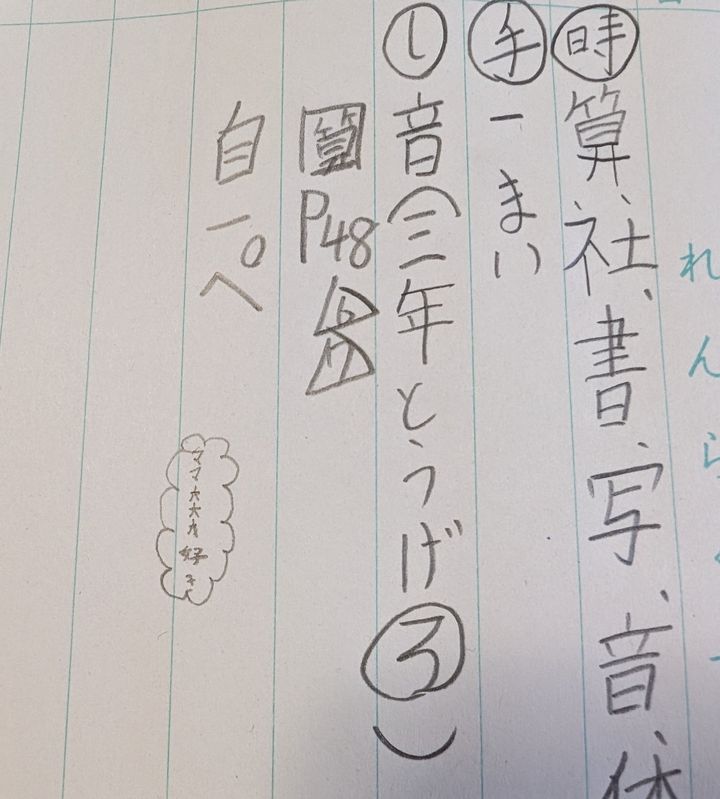 れんら
時 算、社、書、写、音、体
手 一まい
し 音(三年とうげ③)
算 P48
自一ペ
ママ大大大好き